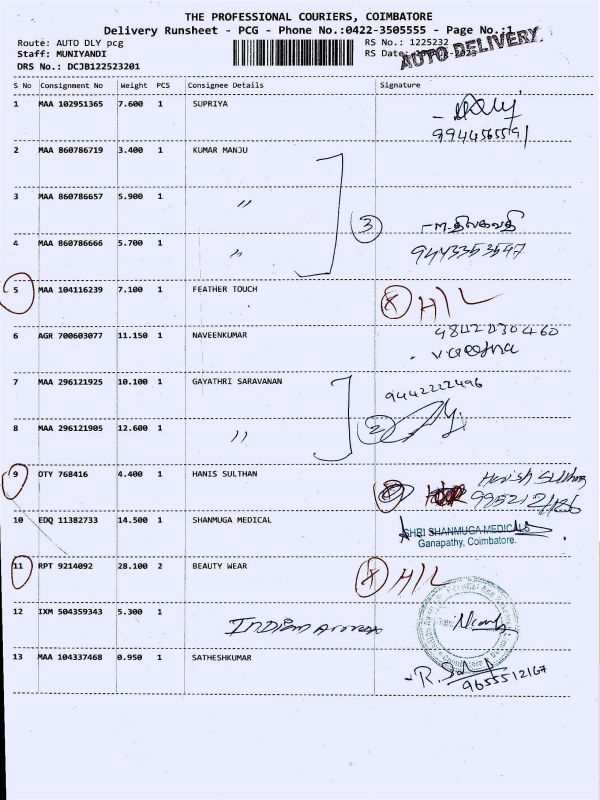 THE PROFESSIONAL COURIERS, COIMBATORE
Delivery Runsheet - PCG - Phone No.:0422-3505555 - Page No.:1
Route: AUTO DLY pcg RS No.: 1225232
Staff: MUNIYANDI RS Date:
AUTO DELIVERY
DRS No.: DCJB122523201
S No Consignment No Weight PCS Consignee Details Signature
1 MAA 102951365 7.600 1 SUPRIYA
9944565591
2 MAA 860786719 3.400 1 KUMAR MANJU
3 MAA 860786657 5.900 1 〃
3
4 MAA 860786666 5.700 1 〃 M.திலகவதி
9443353597
5 MAA 104116239 7.100 1 FEATHER TOUCH X H/L
6 AGR 700603077 11.150 1 NAVEENKUMAR 9842030460
7 MAA 296121925 10.100 1 GAYATHRI SARAVANAN 9442222496
8 MAA 296121905 12.600 1 〃 2
9 OTY 768416 4.400 1 HANIS SULTHAN Hanish Sulthan
10 EDQ 11382733 14.500 1 SHANMUGA MEDICAL SHRI SHANMUGA MEDICALS
Ganapathy, Coimbatore.
11 RPT 9214092 28.100 2 BEAUTY WEAR X H/L
12 IXM 504359343 5.300 1
13 MAA 104337468 0.950 1 SATHESHKUMAR
9655512167